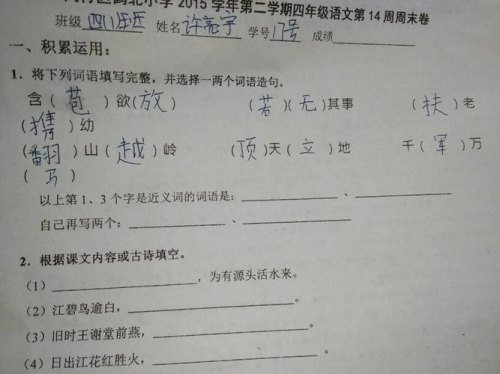 小学2015学年第二学期四年级语文第14周周末卷
班级 四(1)班 姓名 许亮宇 学号 17号 成绩
一、积累运用：
1．将下列词语填写完整，并选择一两个词语造句。
含（苞）欲（放） （若）（无）其事 （扶）老
（携）幼
（翻）山（越）岭 （顶）天（立）地 千（军）万
（马）
以上第1、3个字是近义词的词语是： 、 。
自己再写两个： 、 。
2．根据课文内容或古诗填空。
（1） ，为有源头活水来。
（2）江碧鸟逾白， 。
（3）旧时王谢堂前燕， 。
（4）日出江花红胜火， 。